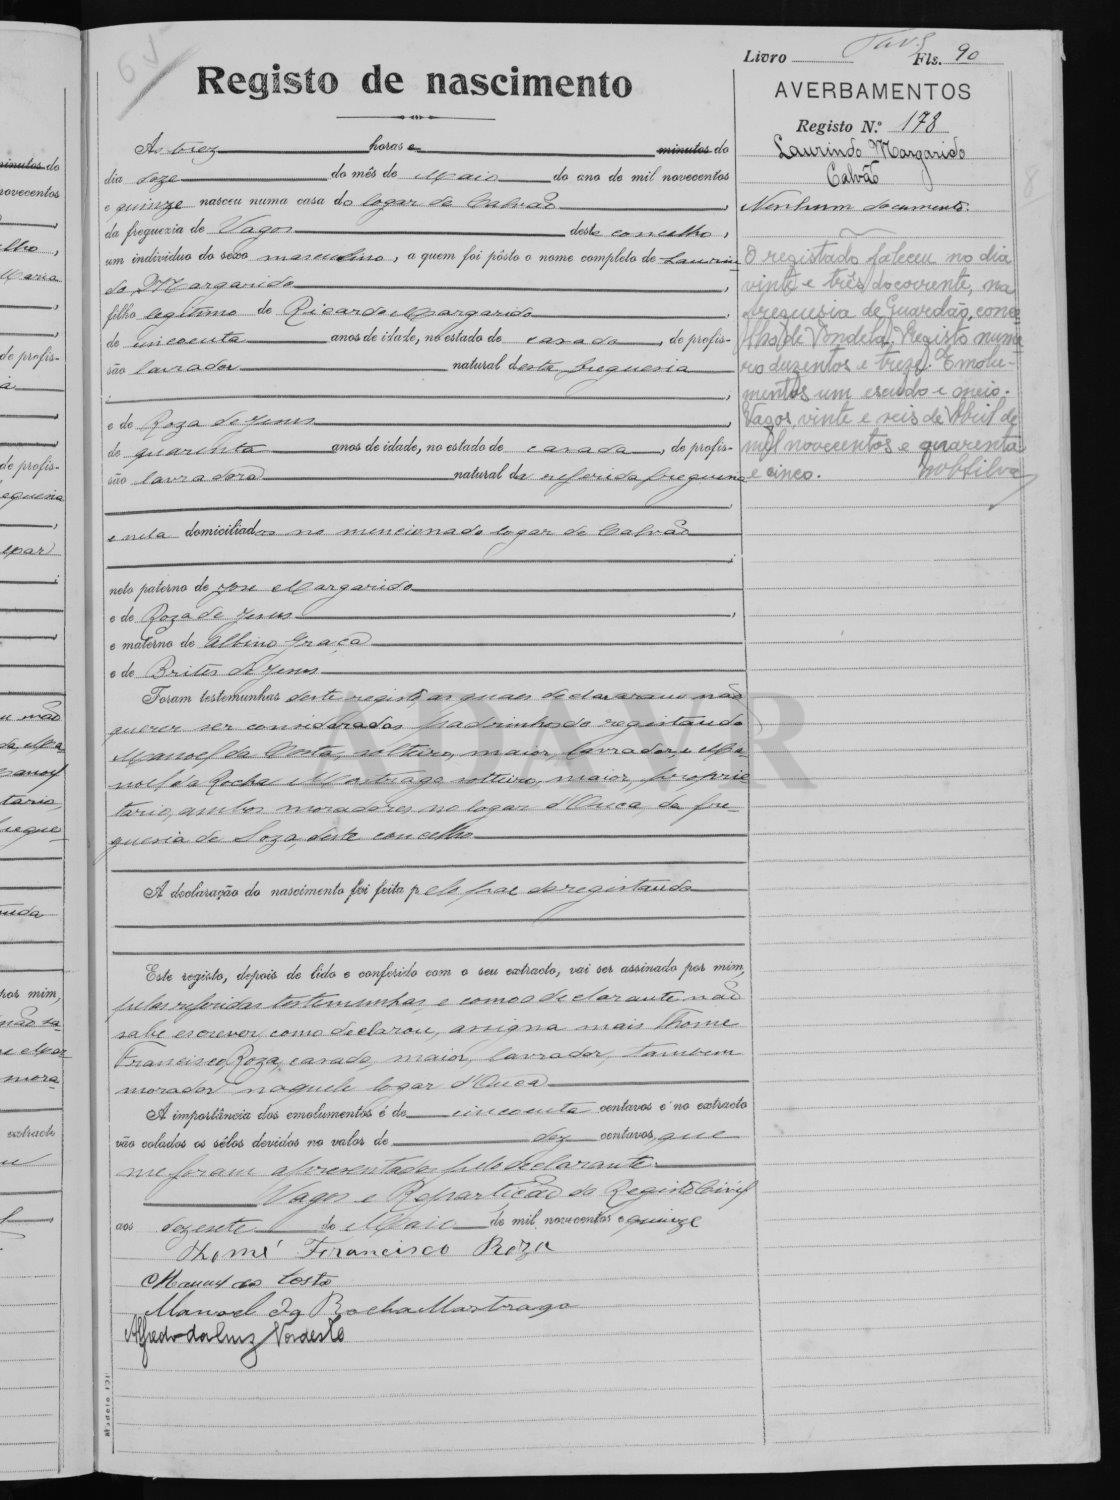 Livro Fls. 90
Registo de nascimento
AVERBAMENTOS
Registo N.º 178
Laurindo Margarido
Calvão
Nenhum documento.
O registado faleceu no dia
vinte e três do corrente, na
freguesia de Guardão, conce-
lho de Tondela. Registo nume-
ro duzentos e treze. Emolu-
mentos um escudo e meio.
Vagos, vinte e seis de Abril de
mil novecentos e quarenta
e cinco.
As trez horas e minutos do
dia doze do mês de Maio do ano de mil novecentos
e quinze nasceu numa casa do logar de Calvão,
da freguezia de Vagos deste concelho,
um individuo do sexo masculino, a quem foi pôsto o nome completo de Laurin-
do Margarido,
filho legitimo de Ricardo Margarido,
de cincoenta anos de idade, no estado de casado, de profis-
são lavrador natural desta freguesia
e de Roza de Jesus,
de quarenta anos de idade, no estado de casada, de profis-
são lavradora natural da referida freguesia
e nela domiciliados no mencionado logar de Calvão
neto paterno de José Margarido
e de Roza de Jesus,
e materno de Albino Graça
e de Brites de Jesus
Foram testemunhas deste registo, as quaes declararam não
querer ser considerados padrinhos do registando
Manoel da Costa, solteiro, maior, lavrador, e Ma-
noel da Rocha Mostrago, solteiro, maior, proprie-
tario, ambos moradores no logar d'Ouca, da fre-
guesia de Soza, deste concelho
A declaração do nascimento foi feita pelo pae do registando
Este registo, depois de lido e conferido com o seu extracto, vai ser assinado por mim,
pelas referidas testemunhas, e como o declarante não
sabe escrever, como declarou, assigna mais Thomé
Francisco Roza, casado, maior, lavrador, tambem
morador naquele logar d'Ouca
A importância dos emolumentos é de cincoenta centavos e no extracto
vão colados os sêlos devidos no valor de dez centavos, que
me foram apresentados pelo declarante.
Vagos e Repartição do Registo Civil
aos dezesete de Maio de mil novecentos e quinze
Thomé Francisco Roza
Manuel da Costa
Manoel da Rocha Mostrago
Alfredo da Luz
Modelo 131
DAVR